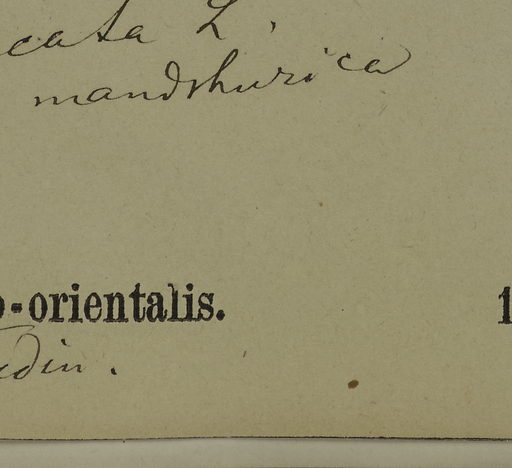 cata L.
mandshurica
o-orientalis. 1
edin.